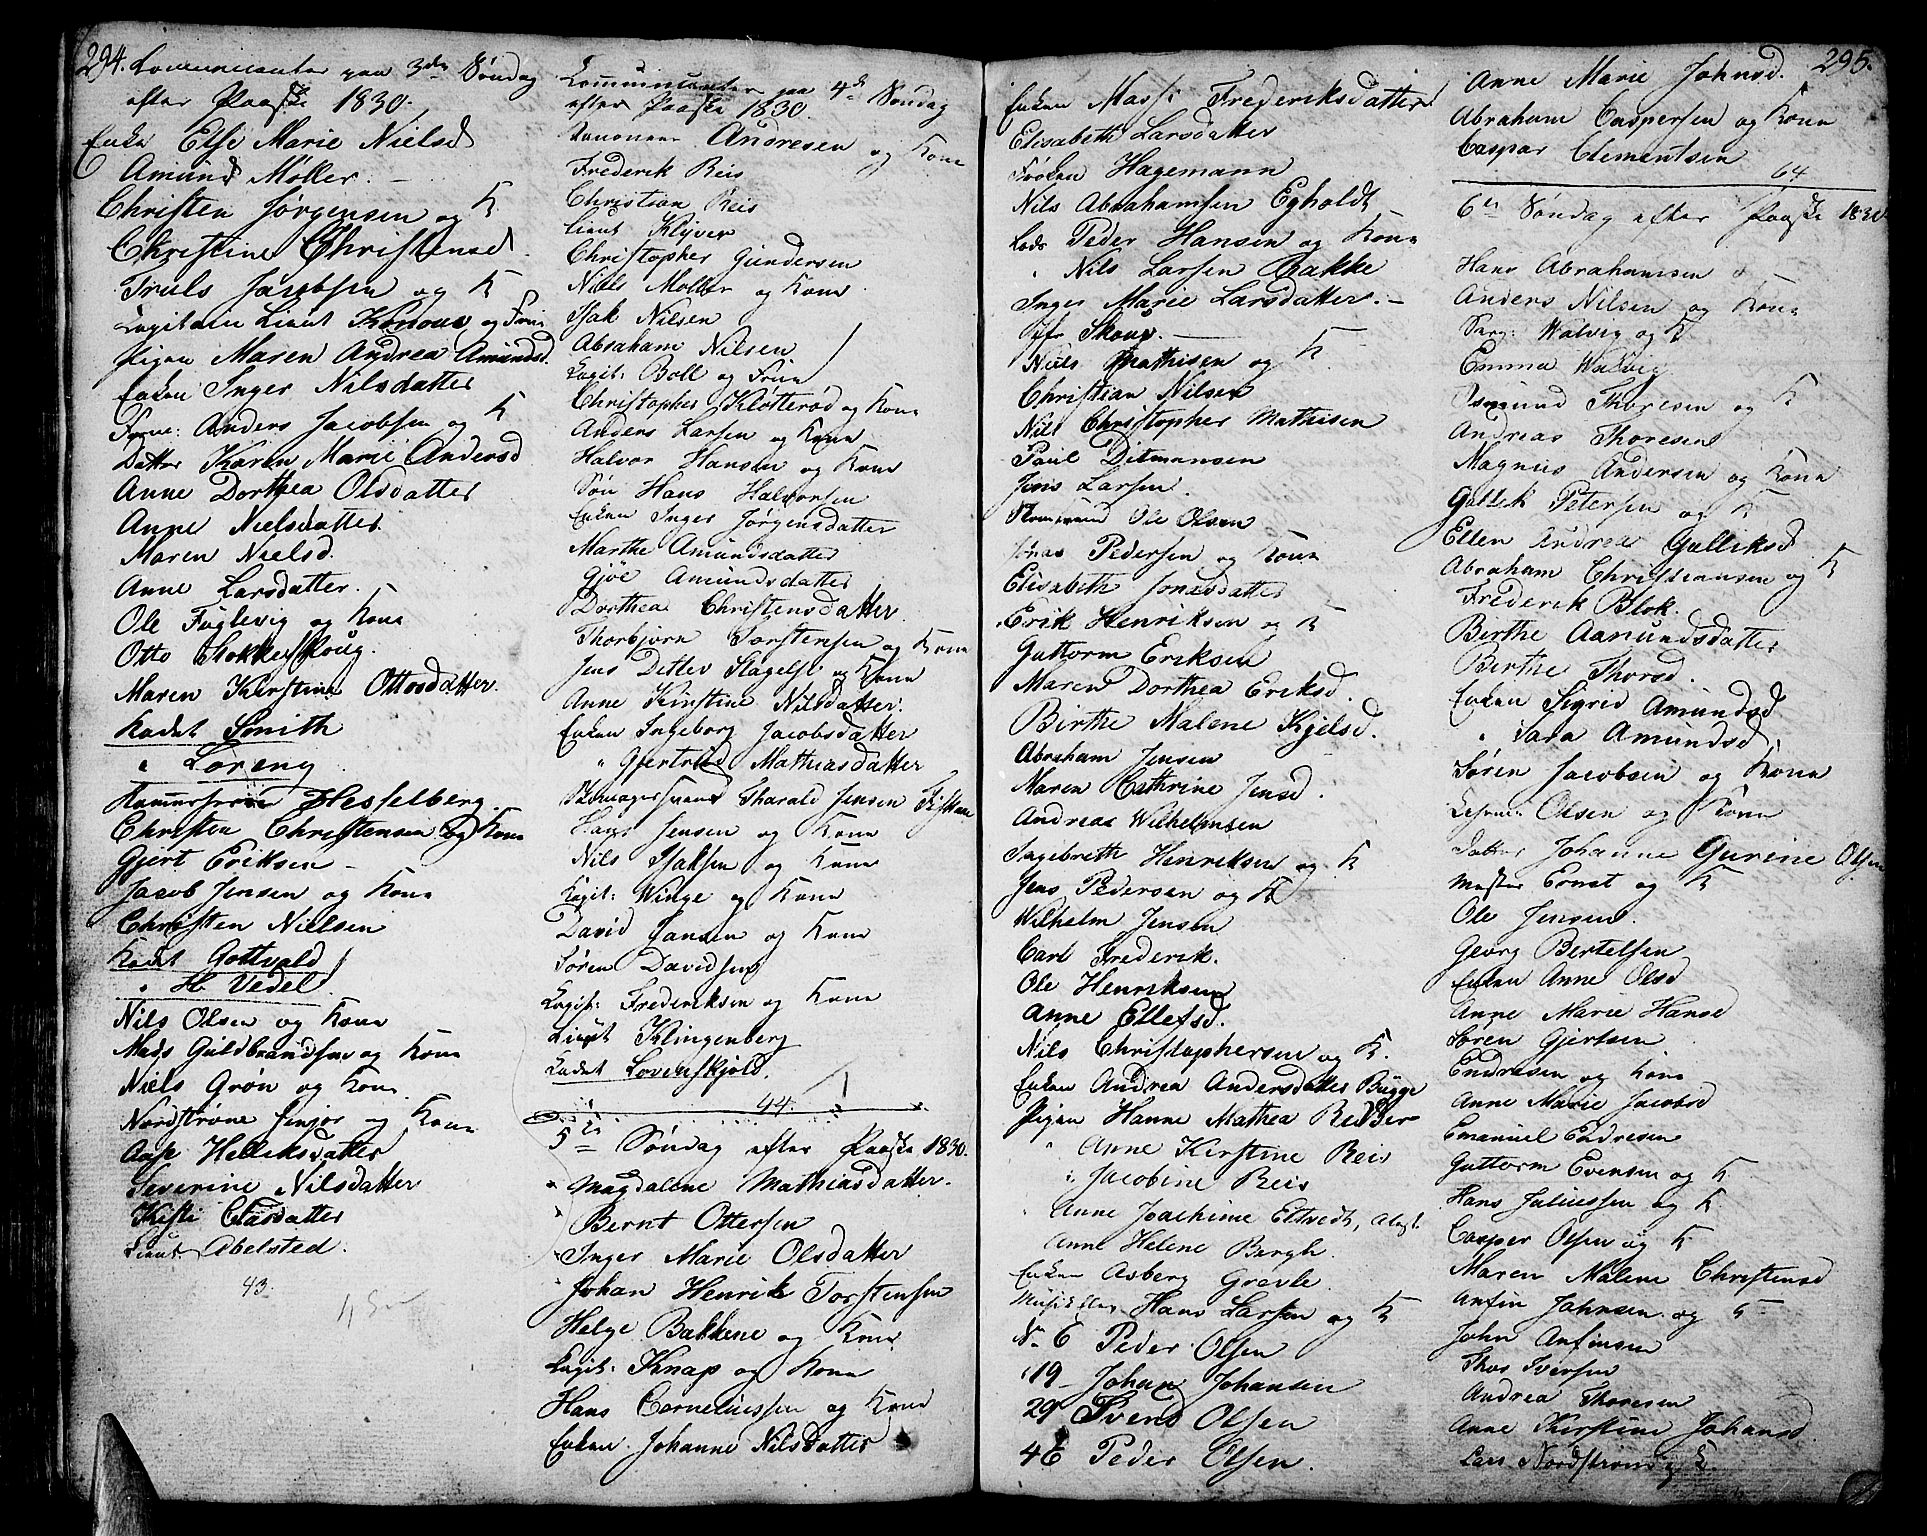 294.
Communicanter paa 3die Søndag
efter Paaske 1830.
Enke Else Marie Nielsd
Amund Møller.
Christen Jørgensen og K
Christine Christensd.
Truls Jacobsen og K
Capitain Lieut Konow og Frue
Pigen Maren Andrea Amundsd.
Enken Inger Nilsdatter
Anders Jacobsen og K
Datter Karen Marie Andersd
Anne Dorthea Olsdatter
Anne Nielsdatter
Maren Nielsd.
Anne Larsdatter.
Ole Fuglevig og Kone
Otto Stokkeskoug.
Maren Kirstine Ottosdatter.
Kadet Smith
" Loreng
Hesselberg.
Christen Christensen og Kone
Gjert Eriksen
Jacob Jensen og Kone
Christen Nielsen
Kadet Gottwald
" H. Vedel
Nils Olsen og Kone
Mads Guldbrandsen og Kone
Niels Grøn og Kone
Nordstrøm senior og Kone
Aase Helleksdatter
Severine Nilsdatter
Kisti Clasdatter
Lieut Abelsted.
43.
Communicanter paa 4de Søndag
efter Paaske 1830.
Kanoneer Andresen og Kone
Frederik Reis
Christian Reis
Lieut Klyver
Christopher Gundersen
Niels Møller og Kone
Isak Nilsen
Abraham Nilsen
Capit: Boll og Frue
Christopher Klosterød og Kone
Anders Larsen og Kone
Halvor Hansen og Kone
Søn Hans Halvorsen
Enken Inger Jørgensdatter
Marthe Amundsdatter
Gjøe Amundsdatter
Dorthea Christensdatter.
Thorbjørn Torstensen og Kone
Jens Detlev Slagelse og Kone
Anne Kirstine Nilsdatter.
Enken Ingeborg Jacobsdatter
" Gjertrud Mathiasdatter
Skomagersvend Tharald Jensen
Hans Jensen og Kone
Nils Isaksen og Kone
Capit: Winge og Kone
David Jansen og Kone
Søren Davidsen
Capit: Frederiksen og Kone
Lieut Klingenberg
Kadet Lovenskjold.
44.
5te Søndag efter Paaske 1830.
Magdalene Mathiasdatter.
Bernt Ottersen
Inger Marie Olsdatter
Johan Henrik Torstensen
Helge Bakkene og Kone
Capit: Knap og Kone
Hans Corneliussen og Kone
Enken Johanne Nilsdatter
Enken Masse Frederiksdatter
Elisabeth Larsdatter
Frøken Hagemann
Nils Abrahamsen Egholdt
Lods Peder Hansen og Kone
" Nils Larsen Bakke
Inger Marie Larsdatter.
Jfr Skoug.
Niels Mathisen og K
Christian Nilsen
Nils Christopher Mathisen
Paul Ditmansen
Jens Larsen.
Ole Olsen
Jonas Pedersen og Kone
Elisabeth Jonasdatter
Erik Henriksen og K
Guttorm Eriksen
Maren Dorthea Eriksd.
Birthe Malene Kjelsd.
Abraham Jensen
Maren Cathrine Jensd.
Andreas Wilhelmsen
Ingebreth Henriksen og K
Jens Pedersen og K
Wilhelm Jensen
Carl Frederik.
Ole Henriksen
Anne Ellefsd.
Nils Christophersen og K.
Enken Andrea Andersdatter Bugge
Pigen Hanne Mathea Redder
" Anne Kirstine Reis
" Jacobine Reis
Anne Joachime Eltvedt,
Anne Helene Bergh.
Enken Asberg Grevle
Musikster Hans Larsen og K
No 6 Peder Olsen
19 Johan Johansen
29 Svend Olsen
46 Peder Olsen.
295.
Anne Marie Johnsd.
Abraham Caspersen og Kone
Caspar Clementsen
64
6te Søndag efter Paaske 1830
Hans Abrahamsen
Anders Nilsen og Kone
Serg: Walvig og K
Emma Walvig
Osmund Thoresen og K
Andreas Thoresen
Magnus Andersen og Kone
Gullik Petersen og K
Ellen Andrea Gulliksd
Abraham Christiansen og K
Frederik Blok.
Birthe Aamundsdatter
Berthe Thorsd.
Enken Sigrid Amundsd
" Sara Amundsd.
Søren Jacobsen og Kone
Olsen og Kone
Datter Johanne Gurine Olsen
Mester Ernst og K
Ole Jensen.
Georg Bertelsen
Enken Anne Olsd
Anne Marie Hansd
Søren Gjertsen
Endresen og Kone
Anne Marie Jacobsd
Emanuel Endresen
Guttorm Evensen og K
Hans Juliussen og K
Casper Olsen og K
Maren Malene Christensd
Anfin Johnsen og K
John Anfinsen
Thor Iversen
Andrea Thoresen
Anne Kirstine Johansd.
Lars Nordstrøm og K.